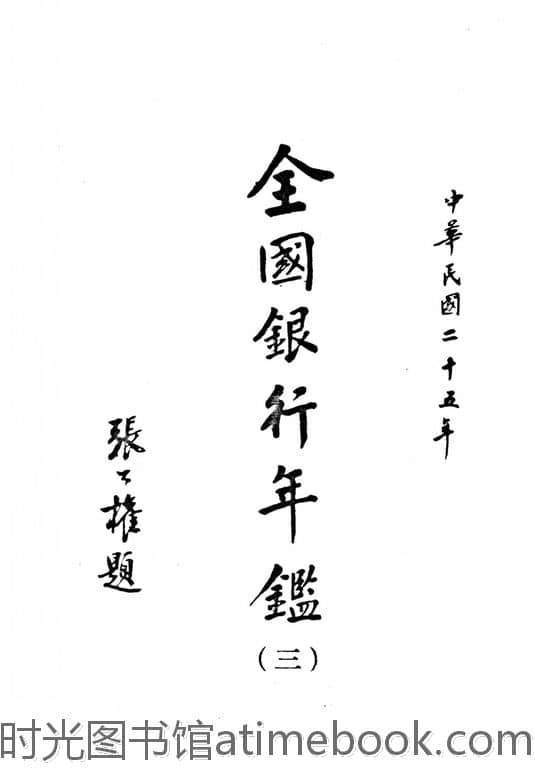 中華民國二十五年
全國銀行年鑑
(三)
張公權題
时光图书馆atimebook.com